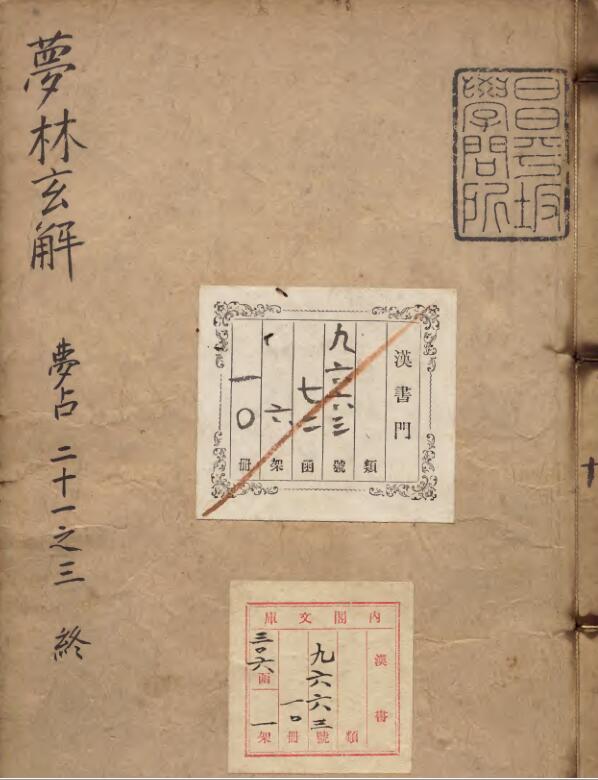 昌平坂
學問所
夢林玄解 夢占 二十一之三 終
漢書門
類
九六六三號
七二函
六架
一〇冊
內閣文庫
漢書
類
九六六三號
一〇冊
三〇六函
一架